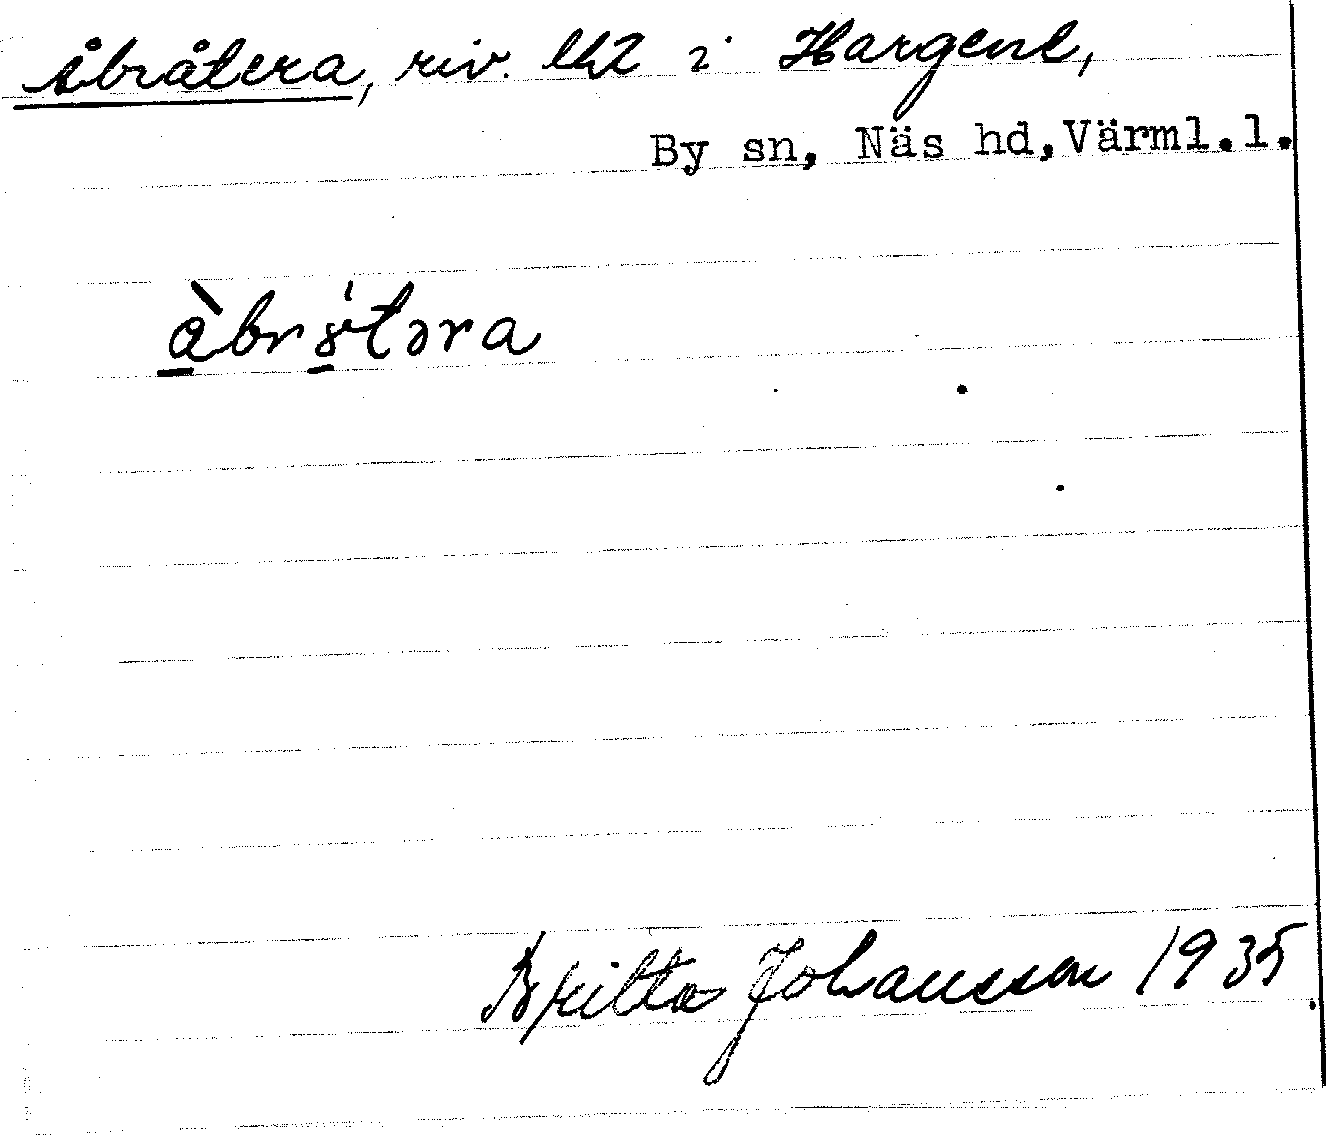 Åbråtera, riv. lh2 i Hargene,
By sn, Näs hd, Värml.l.
Britta Johansson 1935